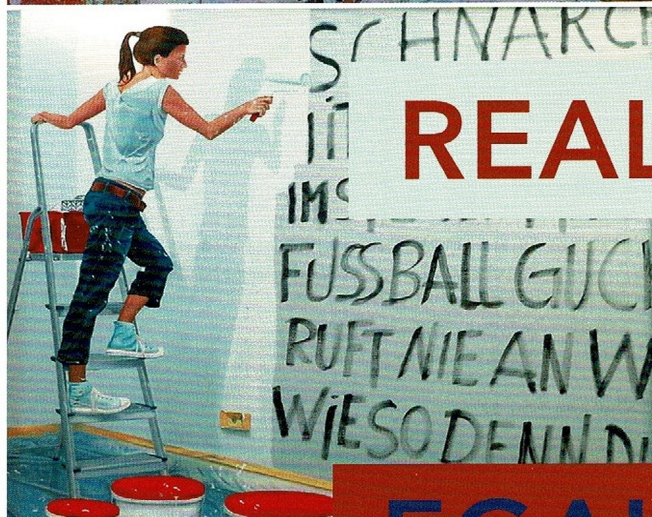 SCHNARCH
REAL
IMS
FUSSBALL GUCK
RUFT NIE AN W
WIESO DENN DU
EGAL